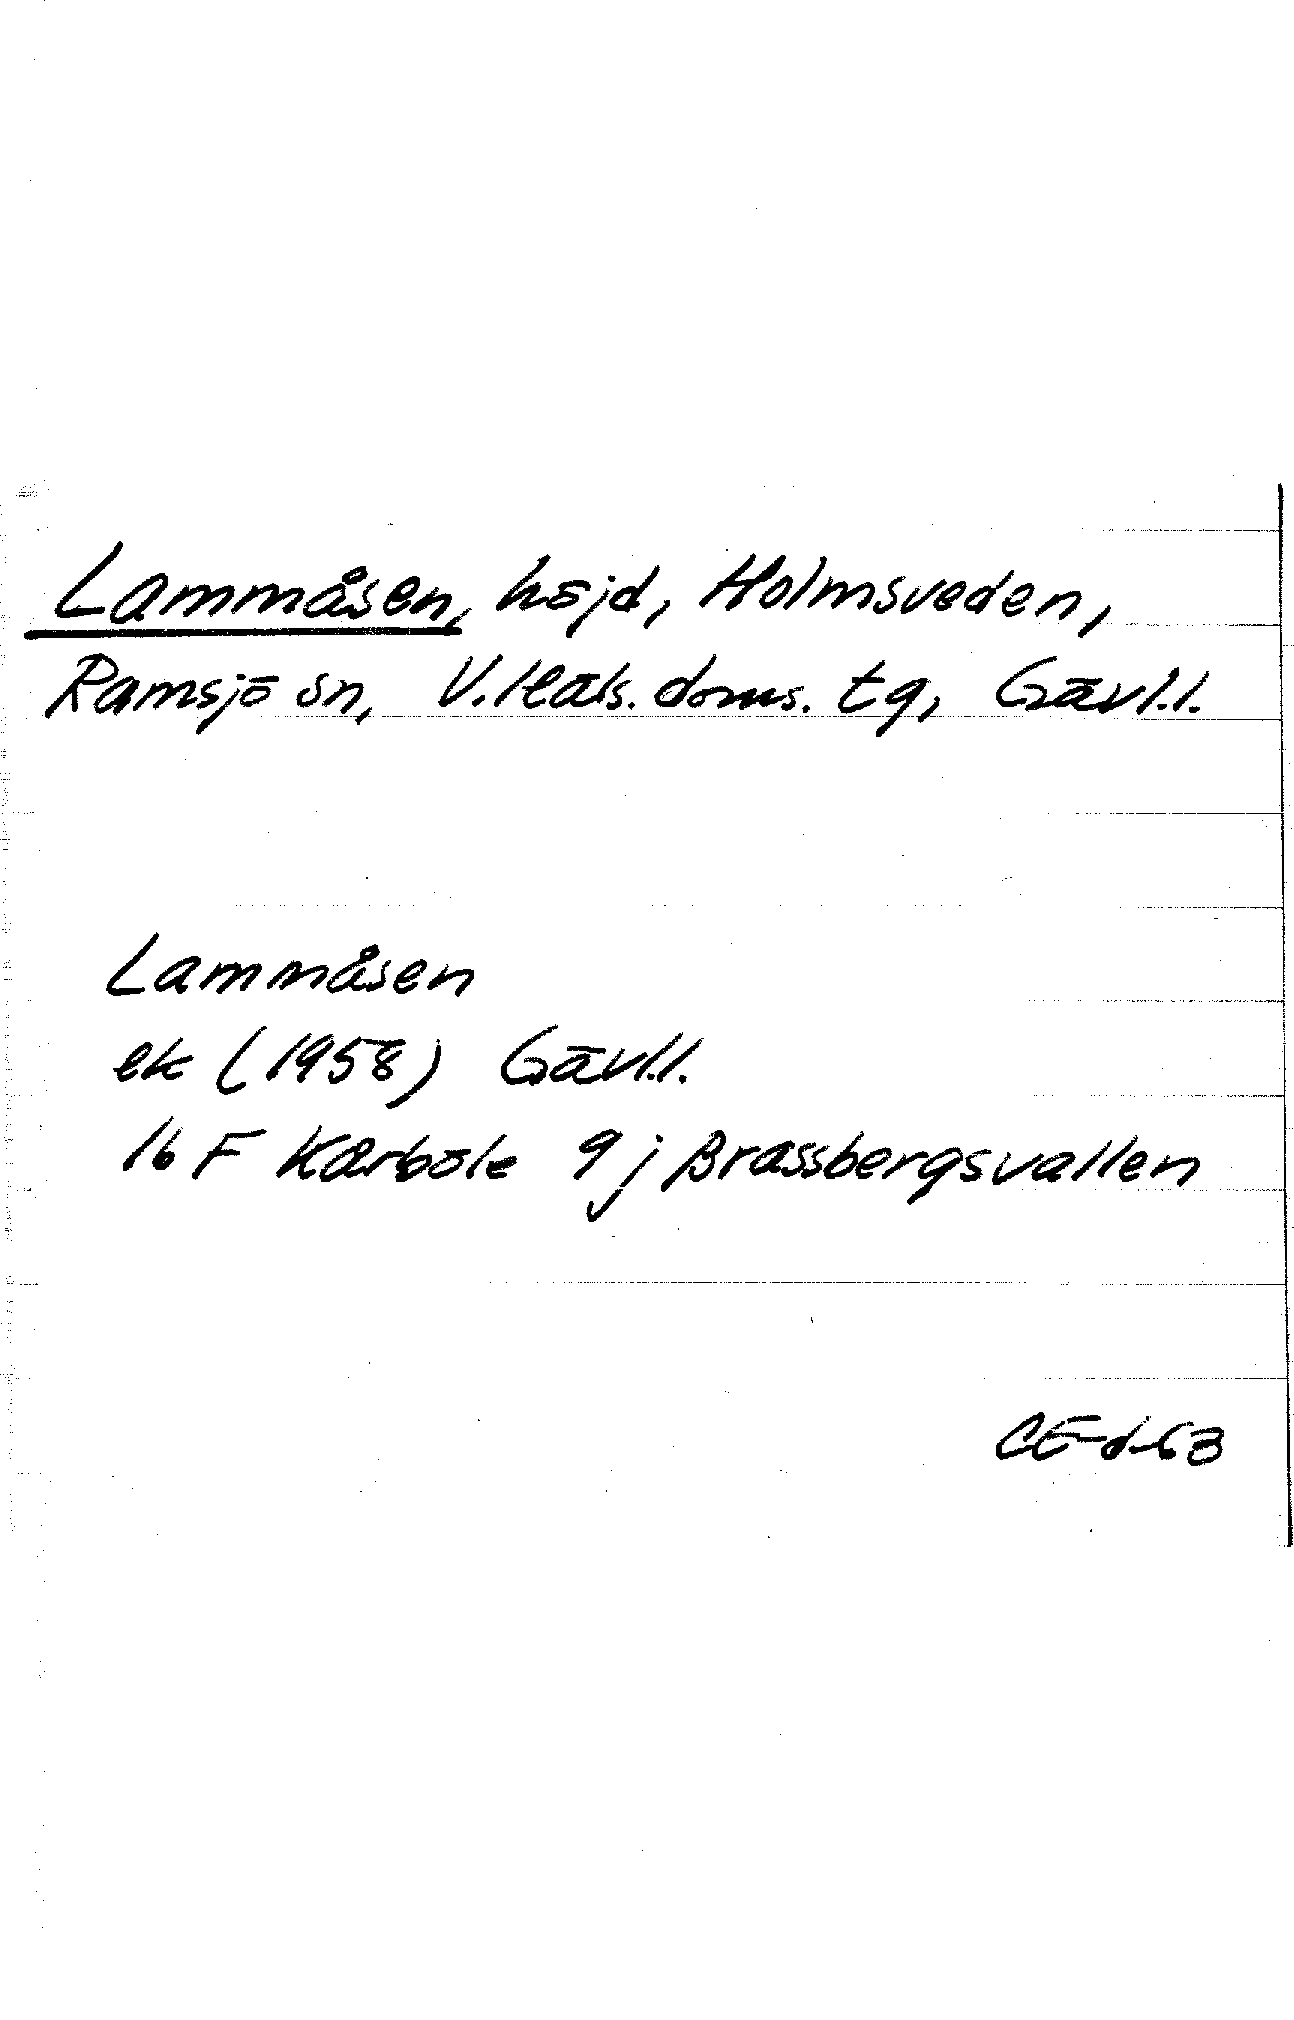 Lammåsen, höjd, Holmsveden,
Ramsjö sn, V. Häls. doms. tg, Gävl.l.
Lammåsen
ek (1958) Gävl.l.
16 F Kårböle 9 j Brassbergsvallen
CE-d-63